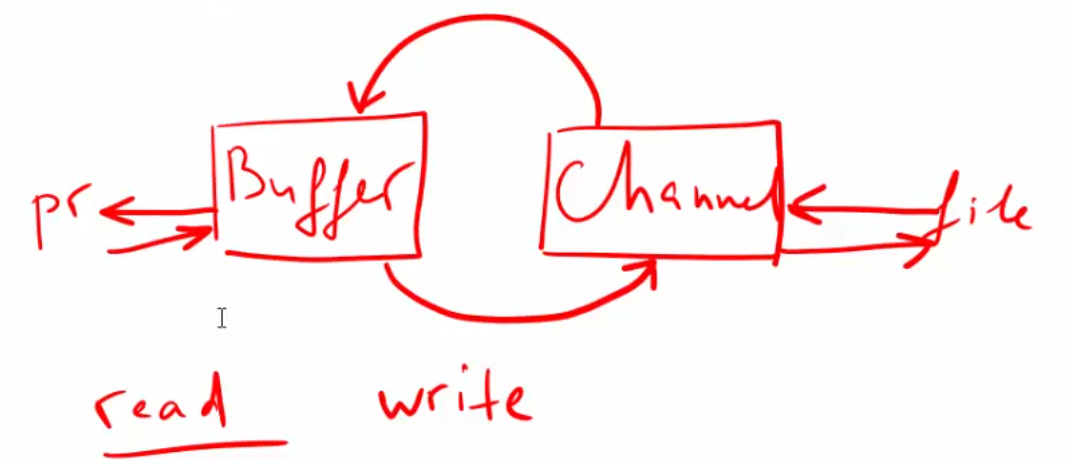 pr Buffer Channel file
read write